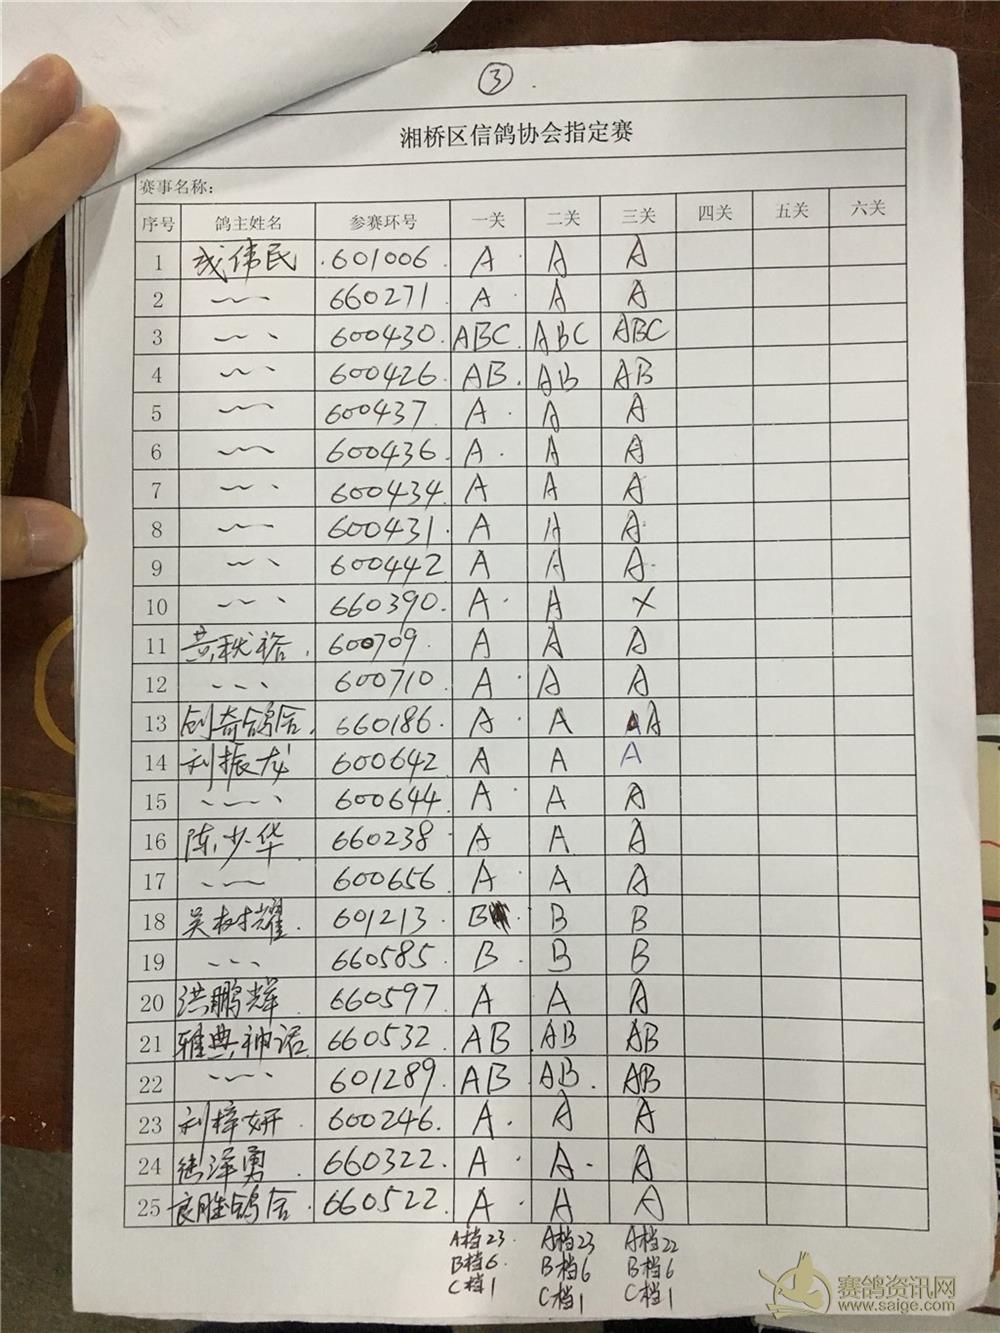 ③
湘桥区信鸽协会指定赛
赛事名称：
序号 鸽主姓名 参赛环号 一关 二关 三关 四关 五关 六关
1 成伟民 601006 A A A
2 〃 660271 A A A
3 〃 600430 ABC ABC ABC
4 〃 600426 AB AB AB
5 〃 600437 A A A
6 〃 600436 A A A
7 〃 600434 A A A
8 〃 600431 A A A
9 〃 600442 A A A
10 〃 660390 A A X
11 黄秋裕 600709 A A A
12 〃 600710 A A A
13 创奇鸽舍 660186 A A A
14 刘振龙 600642 A A A
15 〃 600644 A A A
16 陈少华 660238 A A A
17 〃 600656 A A A
18 吴树耀 601213 B B B
19 〃 660585 B B B
20 洪鹏辉 660597 A A A
21 雅典神话 660532 AB AB AB
22 〃 601289 AB AB AB
23 刘梓妍 600246 A A A
24 泽勇 660322 A A A
25 良胜鸽舍 660522 A A A
A档23 A档23 A档22
B档6 B档6 B档6
C档1 C档1 C档1
赛鸽资讯网
www.saige.com